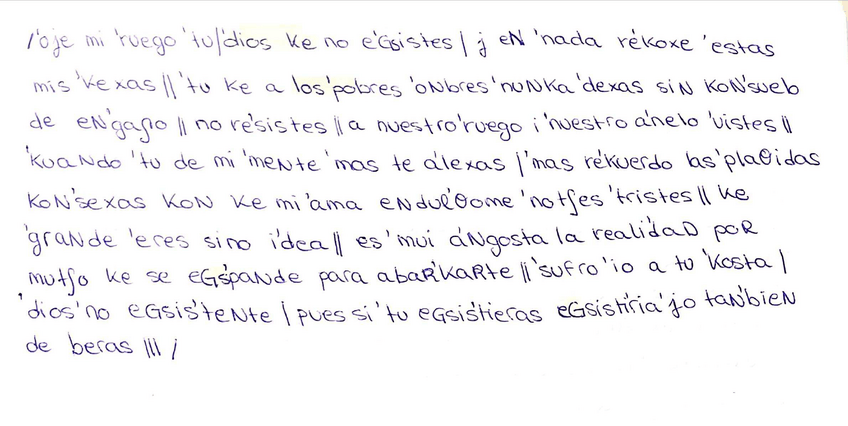 /'oje mi 'ruego 'tu/'dios ke no eG'sistes | j eN 'nada re'koxe 'estas
mis 'kexas || 'tu ke a los 'pobres 'oNbres 'nuNka 'dexas siN KoN'suelo
de eN'gaɲo || no re'sistes || a nuestro 'ruego i 'nuestro a'nelo 'vistes ||
'kuaNdo 'tu de mi 'meNte 'mas te a'lexas | 'mas re'kuerdo las 'plaθidas
KoN'sexas KoN ke mi 'ama eNdul'θome 'notʃes 'tristes || ke
'graNde 'eres sino i'dea || es 'mui aN'gosta la reali'daD poR
mutʃo ke se eGs'paNde para abaR'kaRte || 'sufro 'io a tu 'kosta |
'dios 'no eGsis'teNte | pues si 'tu eGsis'tieras eGsisti'ria 'jo taN'bieN
de beras ||| /